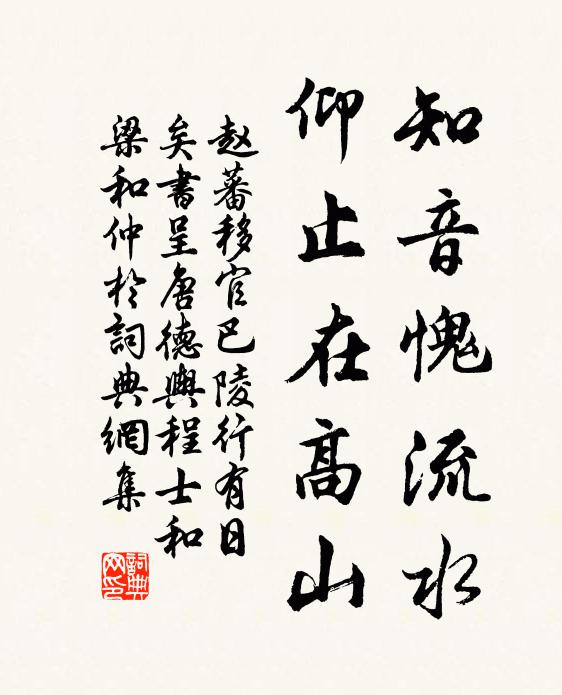 知音愧流水
仰止在高山
赵蕃移官巴陵行有日
矣書呈唐德輿程士和
梁和仲於詞典網集
詞典
网印